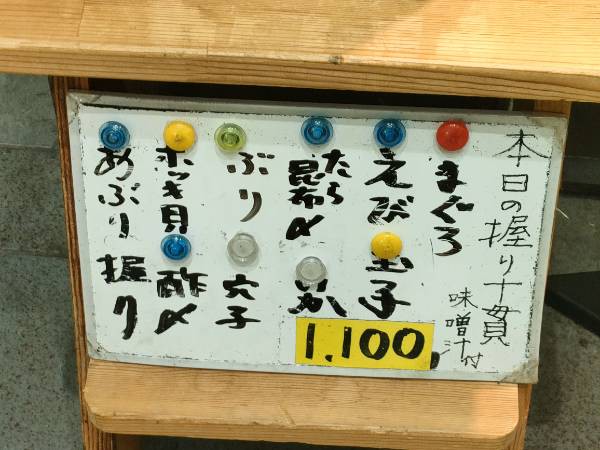 本日の握り十貫
味噌汁付
まぐろ
えび
玉子
たら
昆布〆
いか
ぶり
穴子
ホッキ貝
酢〆
あぶり
握り
1,100